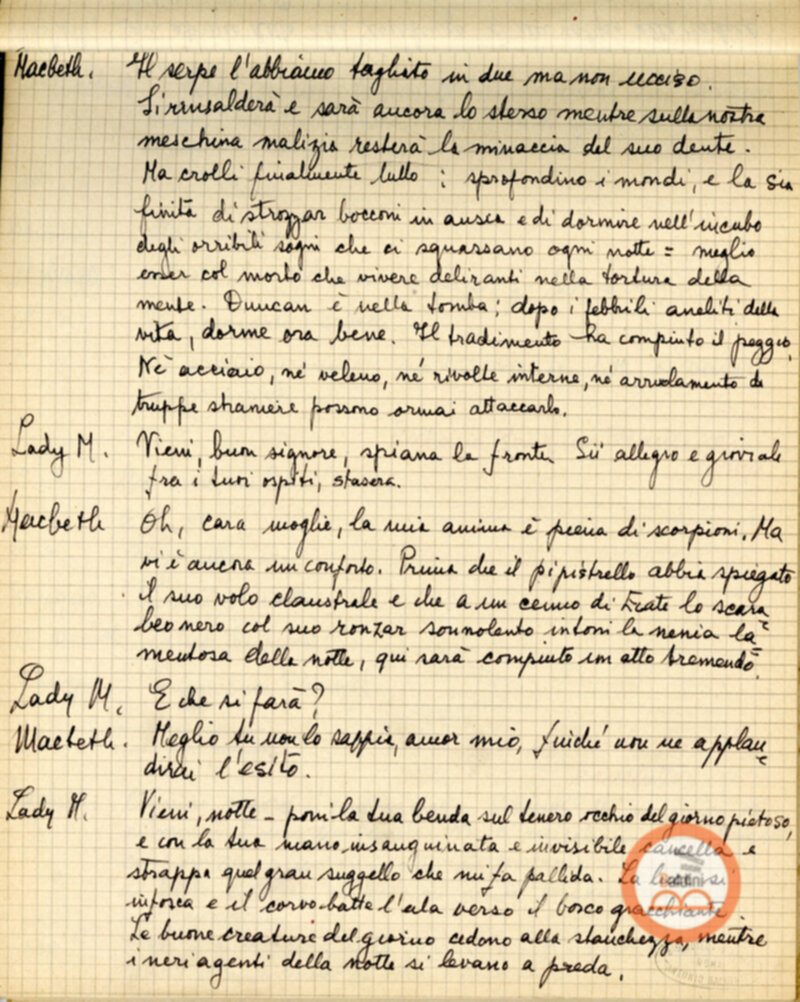 Macbeth. Il serpe l'abbiamo tagliato in due ma non ucciso.
Si risalderà e sarà ancora lo stesso mentre sulla nostra
meschina malizia resterà la minaccia del suo dente.
Ma crolli finalmente tutto : sprofondino i mondi, e la sia
finita di strozzar bocconi in ansia e di dormire nell'incubo
degli orribili sogni che ci squassano ogni notte = meglio
esser col morto che vivere deliranti nella tortura della
mente. Duncan è nella tomba ; dopo i febbrili aneliti della
vita, dorme ora bene. Il tradimento ha compiuto il peggio.
Nè acciaio, né veleno, né rivolte interne, né arruolamento di
truppe straniere possono ormai attaccarlo.
Lady M. Vieni, buon signore, spiana la fronte. Sii allegro e gioviale
fra i tuoi ospiti, stasera.
Macbeth Oh, cara moglie, la mia anima è piena di scorpioni. Ma
vi è ancora un conforto. Prima che il pipistrello abbia spiegato
il suo volo claustrale e che a un cenno di Ecate lo scara
beo nero col suo ronzar sonnolento intoni la nenia la=
mentosa della notte, qui sarà compiuto un atto tremendo.
Lady M. E che si farà?
Macbeth. Meglio tu non lo sappia, amor mio, finiché non ne applau=
dirai l'esito.
Lady M. Vieni, notte - poni la tua benda sul tenero occhio del giorno pietoso,
e con la tua mano insanguinata e invisibile cancella e
strappa quel gran suggello che mi fa pallida. La luce si
infosca e il corvo batte l'ala verso il bosco gracchiante.
Le buone creature del giorno cedono alla stanchezza, mentre
i neri agenti della notte si levano a preda.